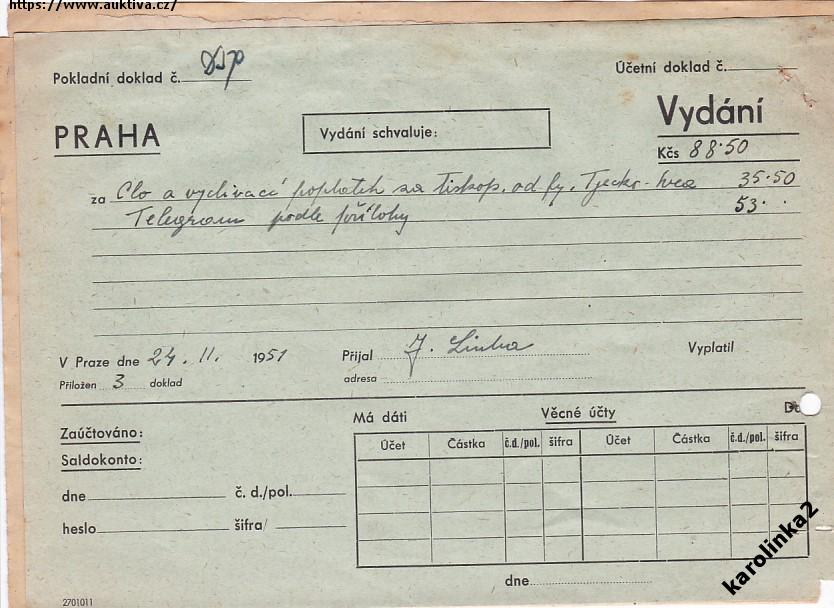 https://www.auktiva.cz/
Pokladní doklad č.
Účetní doklad č.
PRAHA
Vydání schvaluje:
Vydání
Kčs 88·50
za Clo a vyclívací poplatek za tiskop. od fy. 35·50
Telegram podle přílohy 53·
V Praze dne 24. II. 1951 Přijal J. Linha Vyplatil
Přiložen 3 doklad adresa
Má dáti Věcné účty
Zaúčtováno:
Účet Částka č.d./pol. šifra Účet Částka č.d./pol. šifra
Saldokonto:
dne č. d./pol.
heslo šifra/
dne
2701011
karolinka2